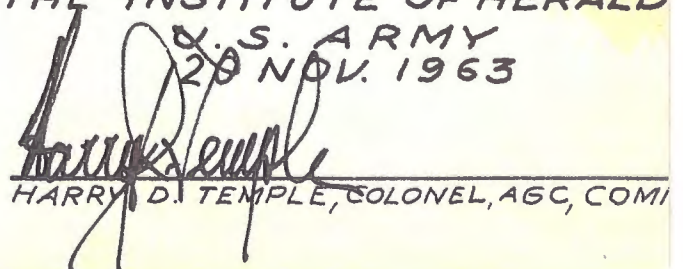 THE INSTITUTE OF HERALD
U. S. ARMY
20 NOV. 1963
Harry D. Temple
HARRY D. TEMPLE, COLONEL, AGC, COM